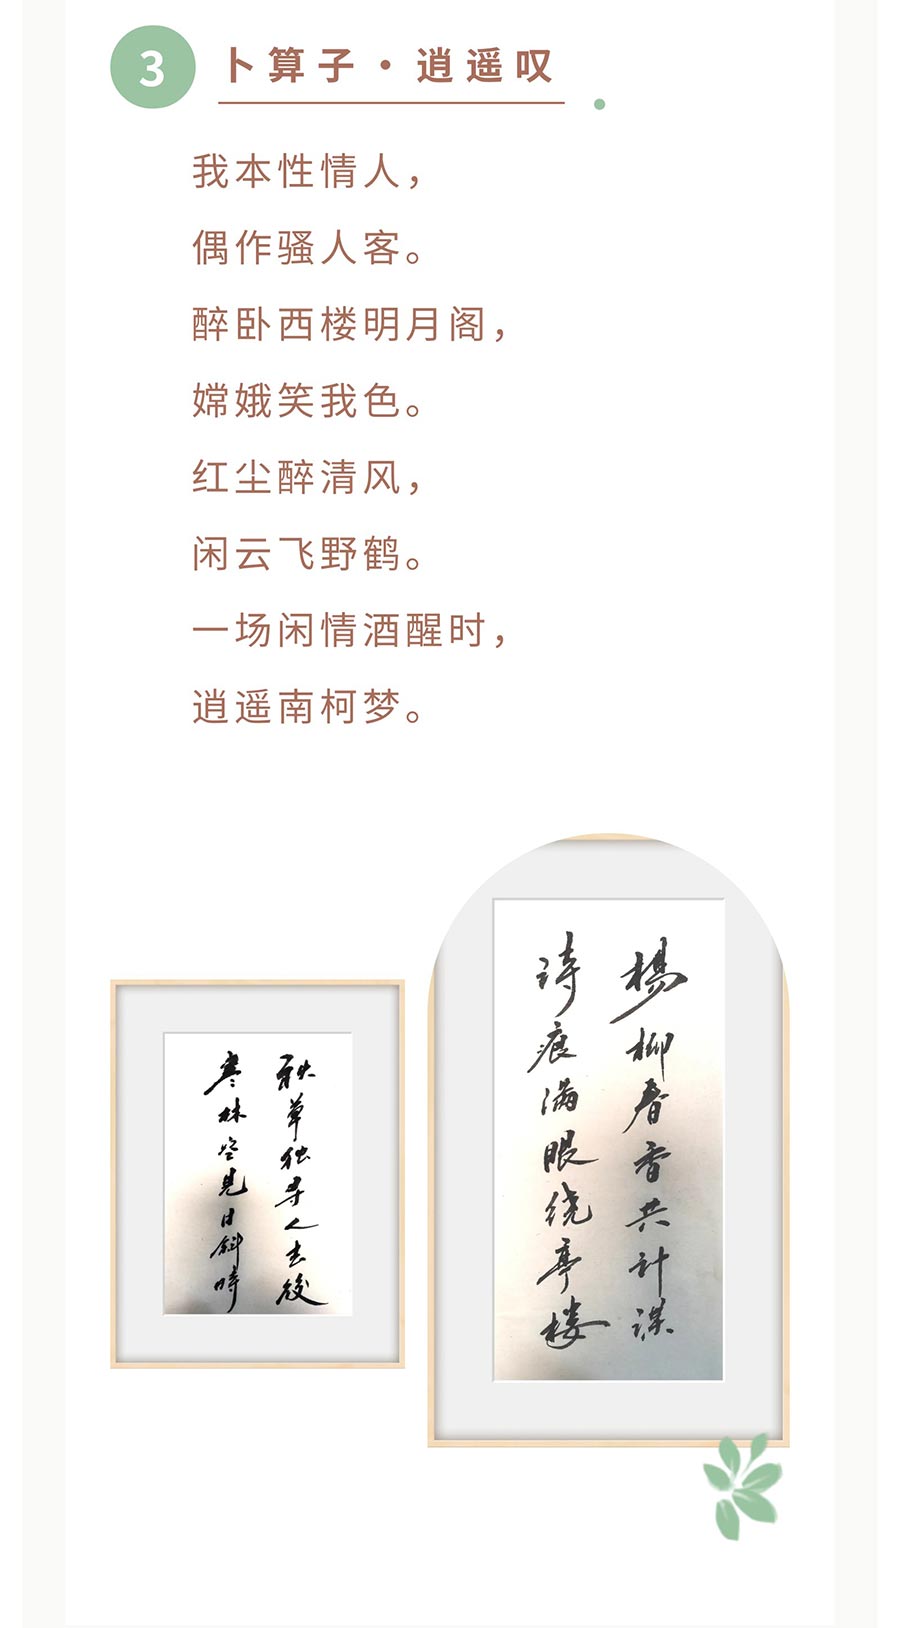 3 卜算子·逍遥叹
我本性情人，
偶作骚人客。
醉卧西楼明月阁，
嫦娥笑我色。
红尘醉清风，
闲云飞野鹤。
一场闲情酒醒时，
逍遥南柯梦。
秋草独寻人去後
寒林空見日斜時
楊柳春香共计谋
诗痕满眼绕亭楼